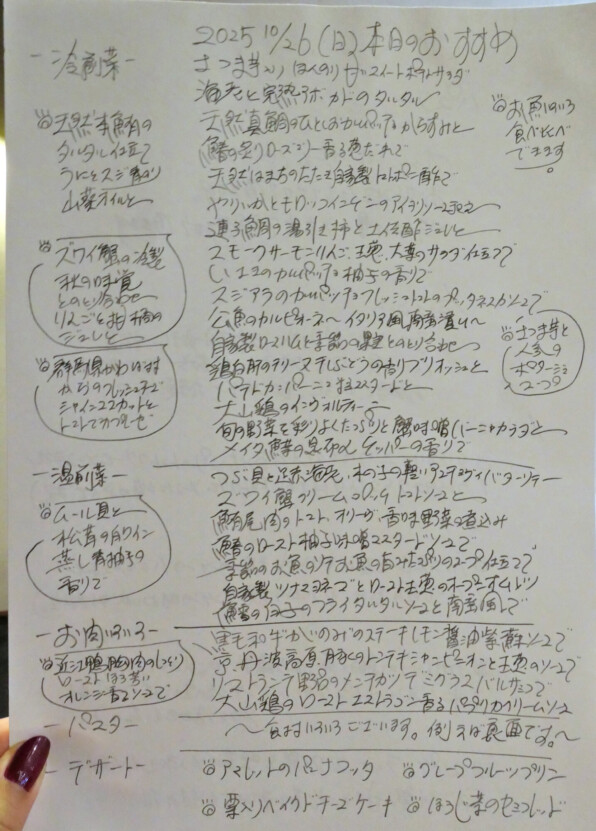 2025 10/26(日)本日のおすすめ
ー冷前菜ー
さつま芋 スイートポテトサラダ
海老と完熟アボカドのタルタル
天然真鯛のひとしおカルパッチョ からすみと
鰆の炙りローズマリー香る葱だれで
天然はまちのたたき自家製トマトポン酢で
やりいかとモロッコインゲンのアイオリソース和え
連子鯛の湯引き柿と土佐酢ジュレと
スモークサーモンりんご、玉葱、大葉のサラダ仕立てで
いさきのカルパッチョ柚子の香りで
スジアラのカルパッチョフレッシュトマトのプッタネスカソースで
公魚のカルピオーネ〜イタリア風南蛮漬け〜
自家製ロースハムと季節の果実とのとり合わせ
鶏白肝のテリーヌ干しぶどうの香りブリオッシュと
パテドカンパーニュ粒マスタードと
大山鶏のインヴォルティーニ
旬の野菜を彩りよくたっぷりと蟹味噌バーニャカウダと
メイタ鰈の昆布〆 ケッパーの香りで
天然本鮪の
タルタル仕立て
うにとスジ青のり
山菜オイルと
ズワイ蟹の冷製
秋の味覚
とのとり合わせ
りんごと
ジュレと
群馬県かわば村
からのフレッシュチーズ
シャインマスカットと
トマトでカプレーゼ
お魚いろいろ
食べ比べ
できます!
さつま芋と
人参の
ポタージュ
スープ
ー温前菜ー
つぶ貝と足赤海老、木の子の軽いアンチョヴィバターソテー
ズワイ蟹クリームコロッケ トマトソースと
鮪尾肉のトマト、オリーブ、香味野菜の煮込み
鰆のロースト柚子味噌マスタードソースで
季節のお魚のソテーお魚の旨みたっぷりのスープ仕立てで
自家製ツナマヨネーズとロースト玉葱のオープンオムレツ
鱈の白子のフライタルタルソースと南蛮風で
ムール貝と
松茸の白ワイン
蒸し青柚子の
香りで
ーお肉いろいろー
黒毛和牛かいのみのステーキレモン醤油紫蘇ソースで
京丹波高原豚のトンテキシャンピニオンと玉葱のソースで
リストランテ野呂のメンチカツデミグラスバルサミコで
大山鶏のロースト エストラゴン香るパプリカクリームソース
近江鴨胸肉のしっとり
ロースト ほろ苦い
オレンジ香るソースで
ーパスター
〜食材いろいろございます。例えば裏面です。〜
ーデザートー
アマレットのパンナコッタ
グレープフルーツプリン
栗入りベイクドチーズケーキ
ほうじ茶のセミフレッド